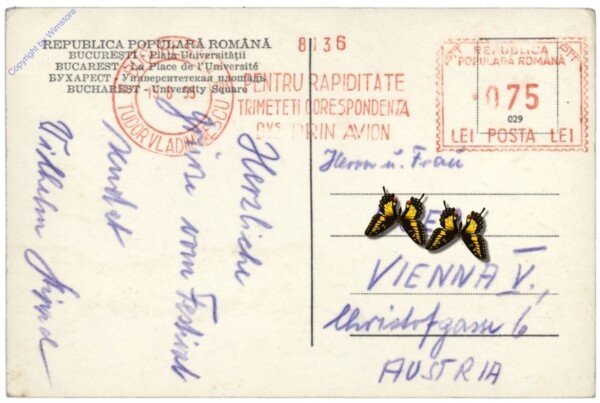 Copyright by Wimstore
REPUBLICA POPULARĂ ROMÂNĂ
BUCUREŞTI - Piaţa Universităţii
BUCAREST - La Place de l'Université
БУХАРЕСТ - Университетская площадь
BUCHAREST - University Square
TUDOR VLADIMIRESCU
8136
PENTRU RAPIDITATE
TRIMETETI CORESPONDENTA
DVS. PRIN AVION
PTT REPUBLICA PTT
POPULARĂ ROMÂNĂ
0.75
029
LEI POSTA LEI
Herzliche
Grüße vom Festival
sendet
Wilhelm
Herrn u. Frau
VIENNA V,
Christofgasse 6
AUSTRIA